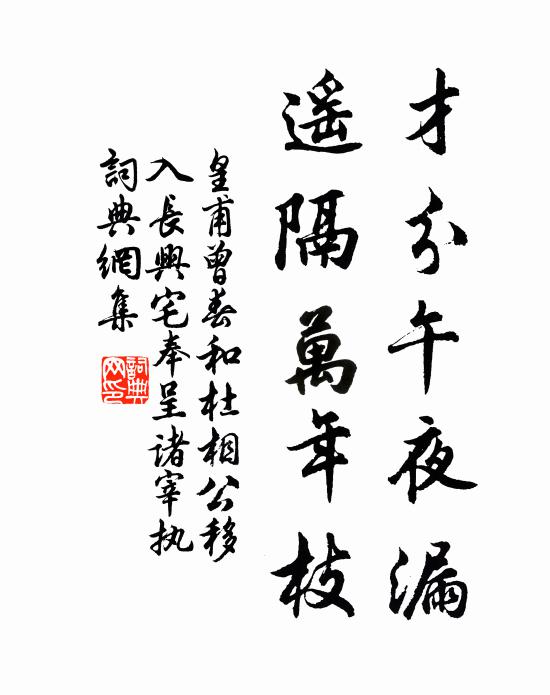 才分午夜漏
遥隔萬年枝
皇甫曾奉和杜相公移
入長興宅奉呈诸宰执
詞典網集
詞典
网印